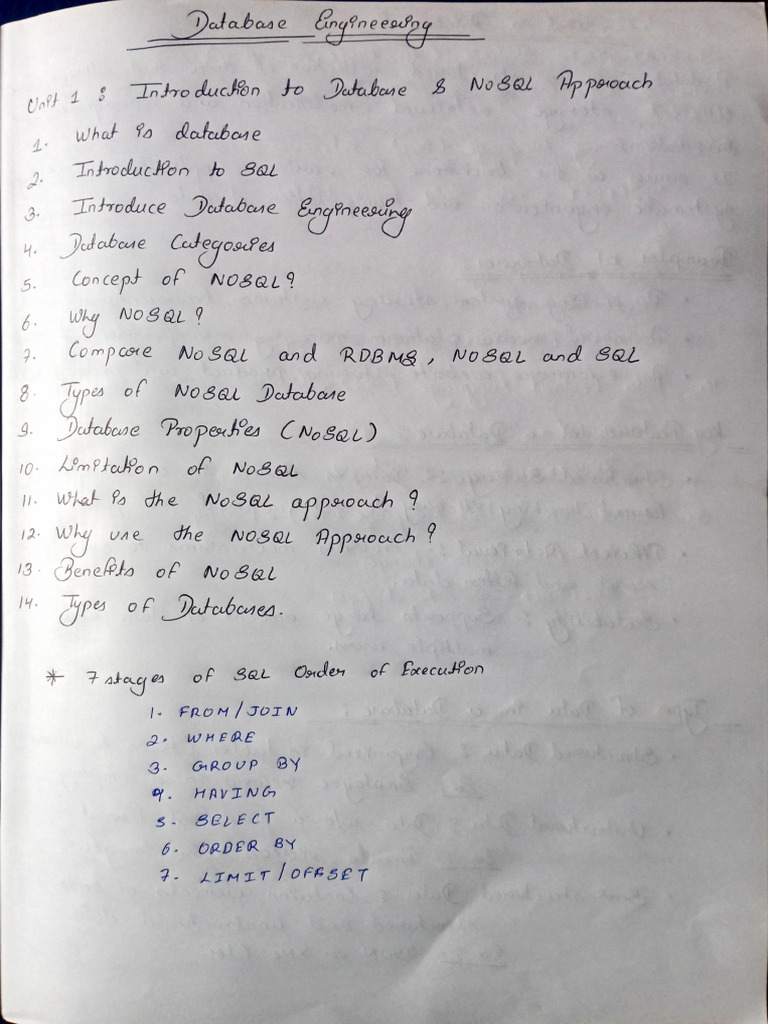 Database Engineering
Unit 1 : Introduction to Database & NoSQL Approach
1. What is database
2. Introduction to SQL
3. Introduce Database Engineering
4. Database Categories
5. Concept of NOSQL?
6. Why NOSQL?
7. Compare NoSQL and RDBMS, NOSQL and SQL
8. Types of NOSQL Database
9. Database Properties (NoSQL)
10. Limitation of NOSQL
11. What is the NOSQL approach?
12. Why use the NOSQL Approach?
13. Benefits of NOSQL
14. Types of Databases.
* 7 stages of SQL Order of Execution
1. FROM/JOIN
2. WHERE
3. GROUP BY
4. HAVING
5. SELECT
6. ORDER BY
7. LIMIT/OFFSET